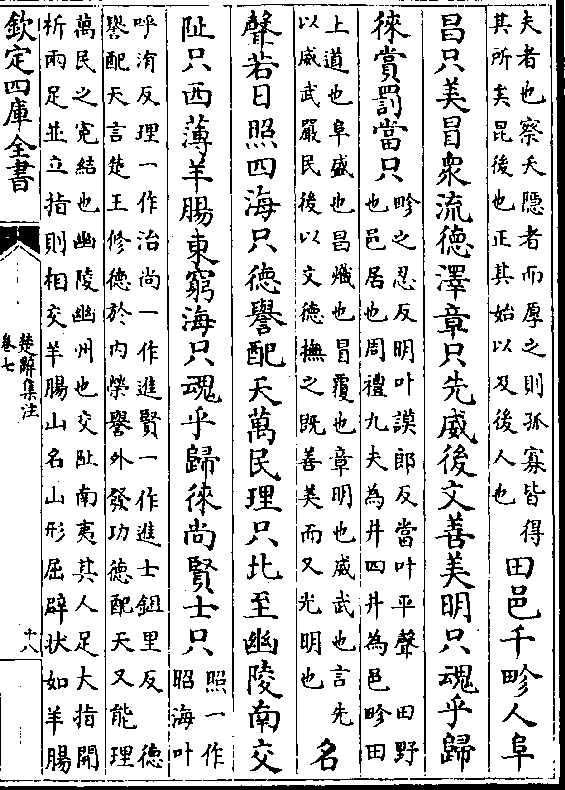 夫者也察夭隠者而厚之則孤寡皆得
其所矣昆後也正其始以及後人也
田邑千畛人阜
昌只美冒衆流德澤章只先威後文善美明只魂乎歸
徠賞罰當只
畛之忍反明叶謨郎反當叶平聲 田野
也邑居也周禮九夫為井四井為邑畛田
上道也阜盛也昌熾也冒覆也章明也威武也言先
以威武嚴民後以文德撫之既善美而又光明也
名
聲若日照四海只德譽配天萬民理只北至幽陵南交
阯只西薄羊腸東窮海只魂乎歸徠尚賢士只
照一作
昭海叶
呼洧反理一作治尚一作進賢一作進士鉏里反 德
譽配天言楚王修德於内榮譽外發功德配天又能理
萬民之寃結也幽陵幽州也交阯南夷其人足大指開
析兩足並立指則相交羊腸山名山形屈辟状如羊腸
欽定四庫全書
楚辭集注
卷七
十八